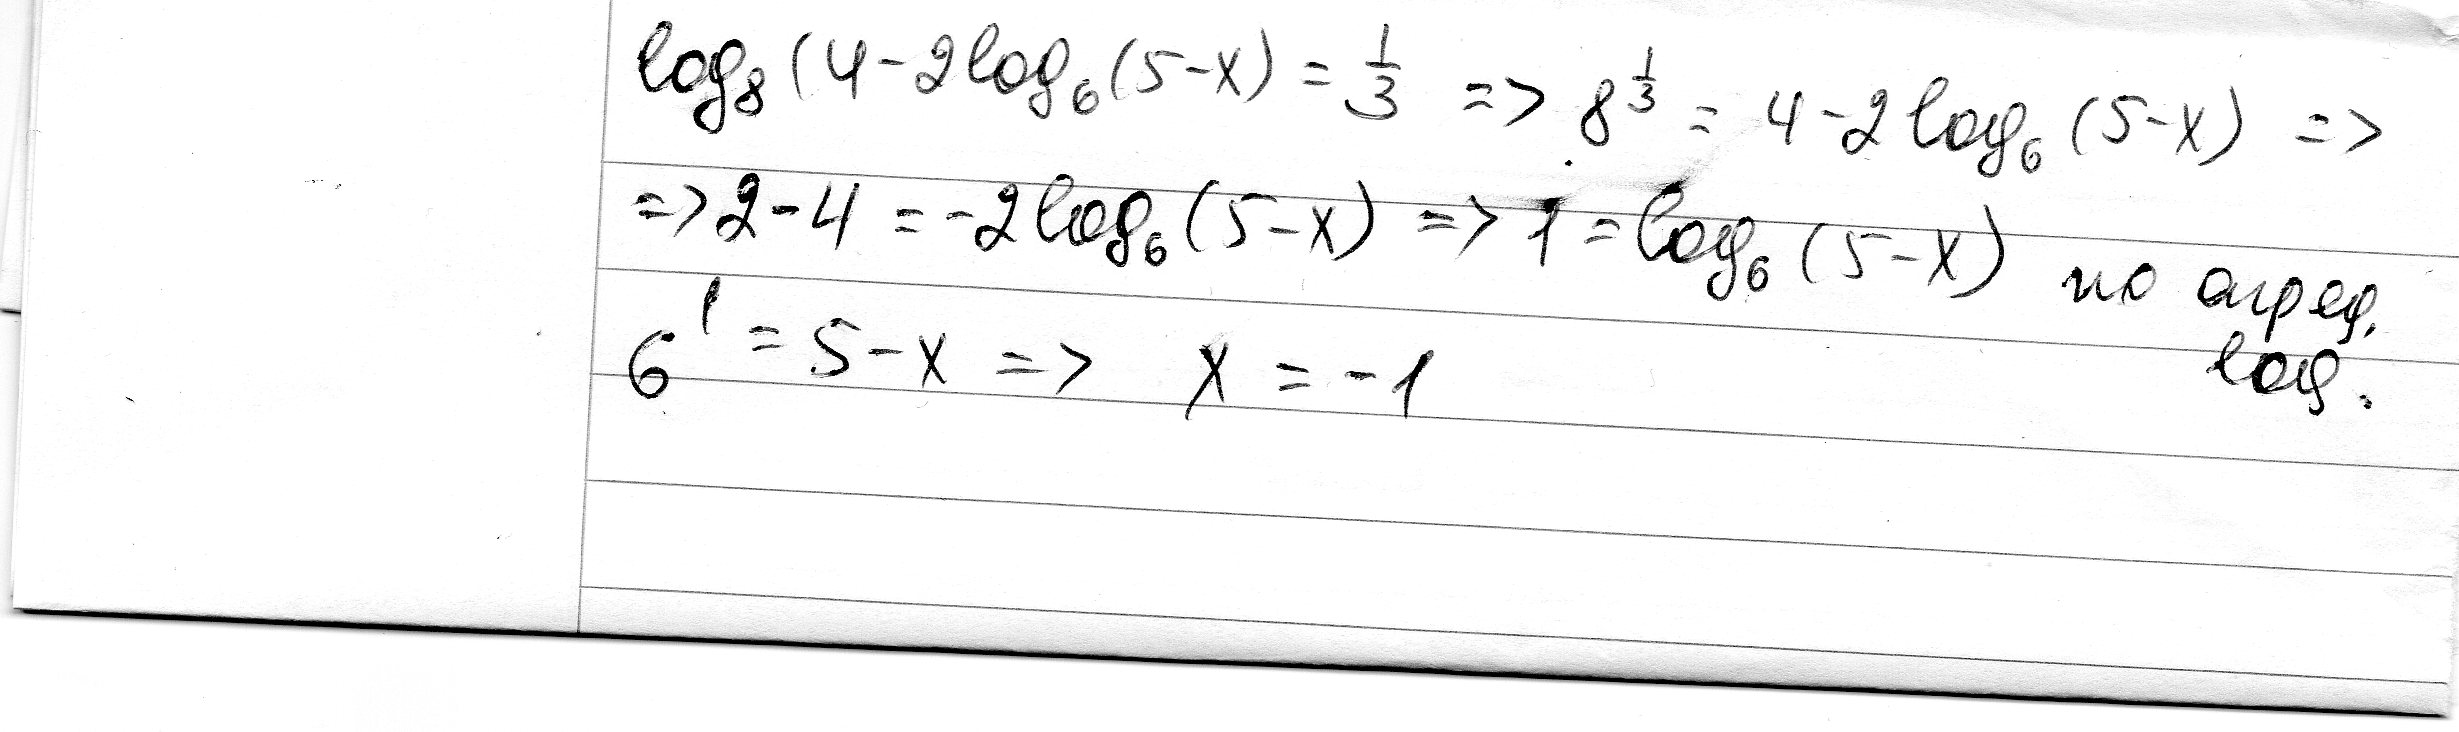 log₈(4-2log₆(5-x) = 1/3 => 8^(1/3) = 4-2log₆(5-x) =>
=> 2-4 = -2log₆(5-x) => 1 = log₆(5-x) по опред.
log.
6¹ = 5-x => x = -1